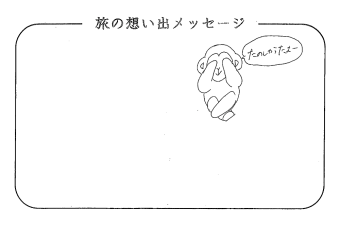 旅の想い出メッセージ
たのしかったよー